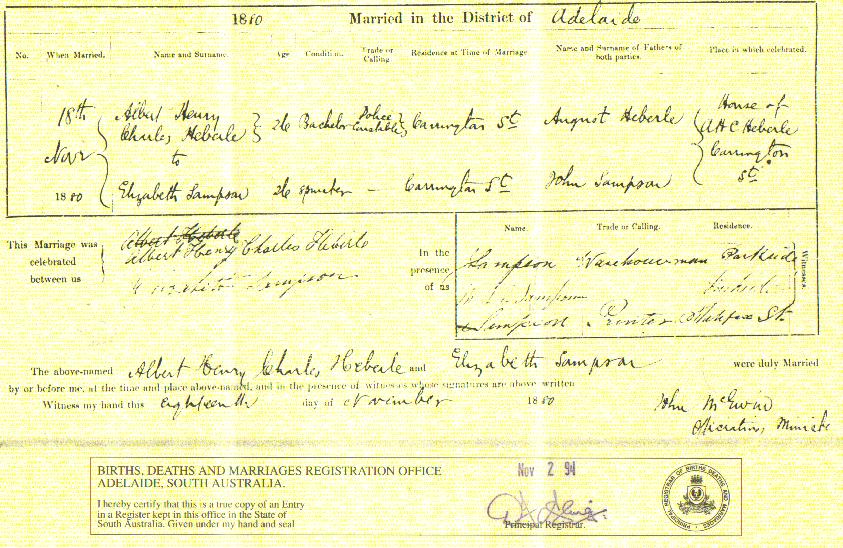 1880 Married in the District of Adelaide
No. When Married. Name and Surname. Age Condition. Trade or Calling Residence at Time of Marriage. Name and Surname of Fathers of both parties. Place in which celebrated.
18th Novr 1880
Albert Henry Charles Heberle 26 Bachelor Police Constable Carrington St August Heberle
to
Elizabeth Sampson 26 spinster — Carrington St John Sampson
House of
AHC Heberle
Carrington
St.
This Marriage was celebrated between us
Albert Heberle
Albert Henry Charles Heberle
Sampson
In the presence of us
Name. Trade or Calling. Residence.
Sampson Warehouseman Parkside
Sampson
Sampson Printer Halifax St.
Witnesses.
The above-named Albert Henry Charles Heberle and Elizabeth Sampson were duly Married
by or before me, at the time and place above-named, and in the presence of witnesses whose signatures are above written
Witness my hand this eighteenth day of November 1880
John
Officiating Minister
BIRTHS, DEATHS AND MARRIAGES REGISTRATION OFFICE
ADELAIDE, SOUTH AUSTRALIA.
I hereby certify that this is a true copy of an Entry
in a Register kept in this office in the State of
South Australia. Given under my hand and seal
Nov 2 94
Principal Registrar.
PRINCIPAL REGISTRAR OF BIRTHS DEATHS AND MARRIAGES